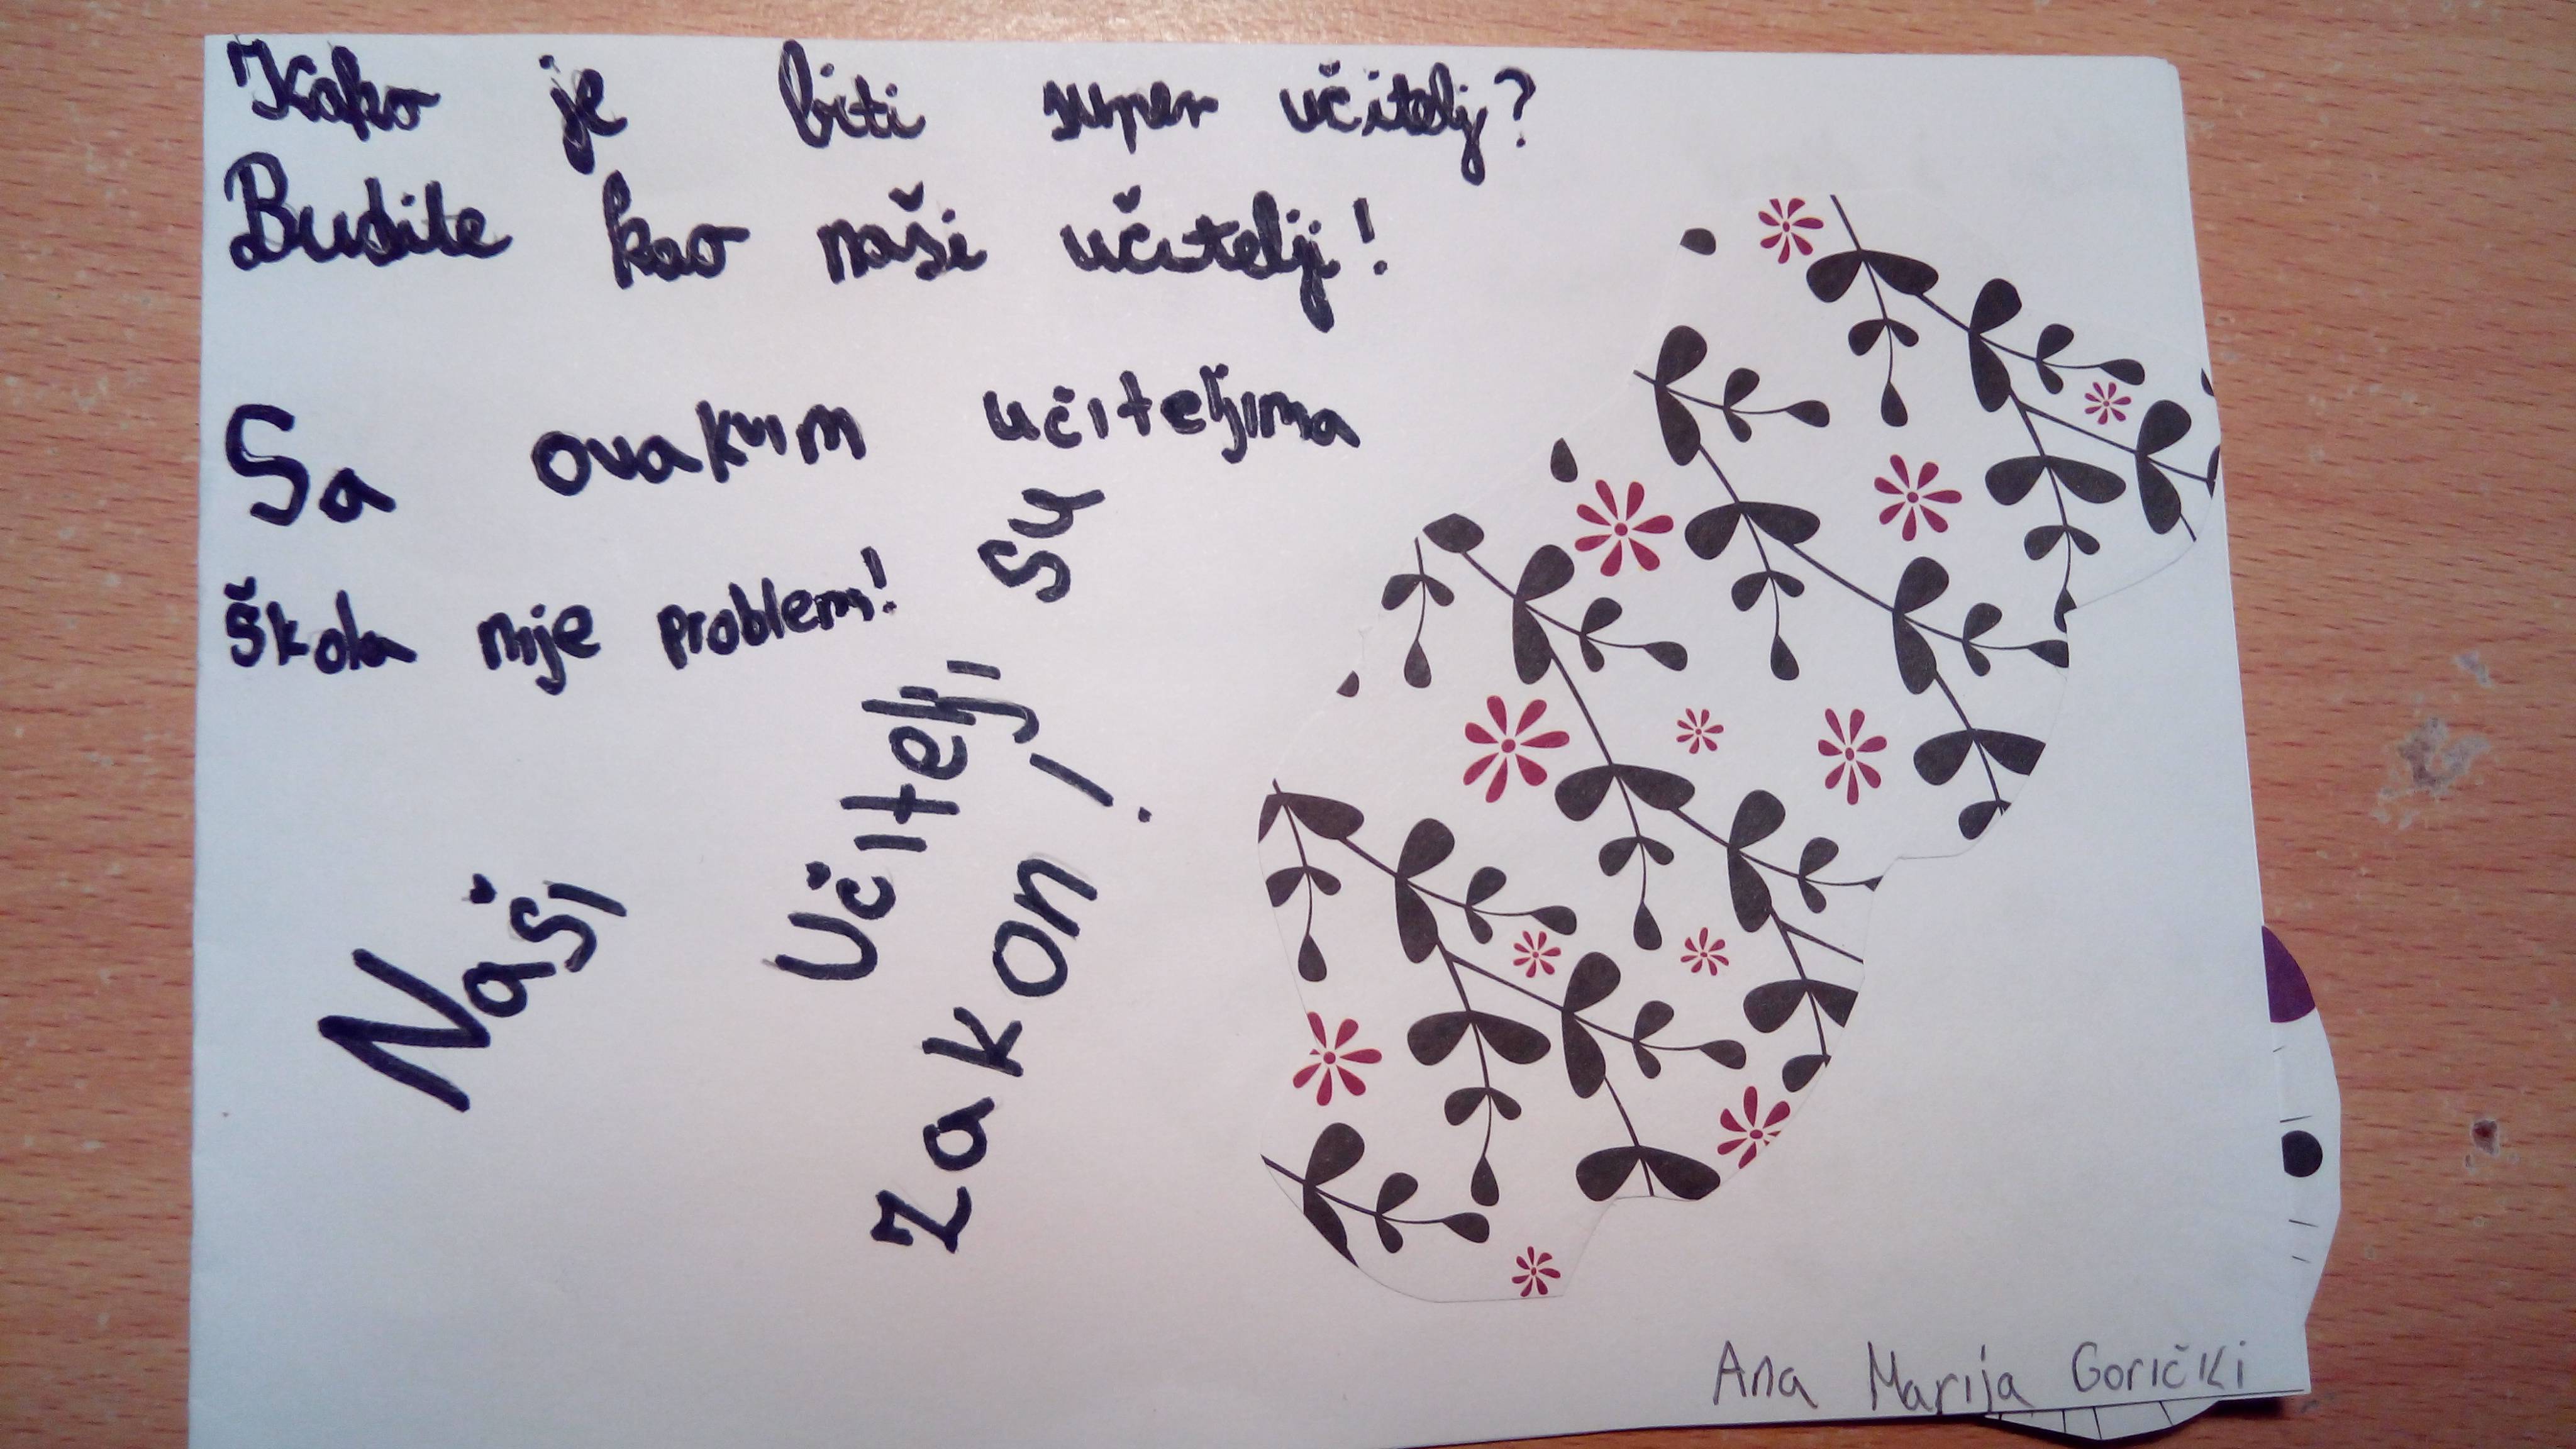 Kako je biti super učitelj?
Budite kao naši učitelji!
Sa ovakvim učiteljima
škola nije problem!
Naši Učitelji su
zakon!
Ana Marija Gorički